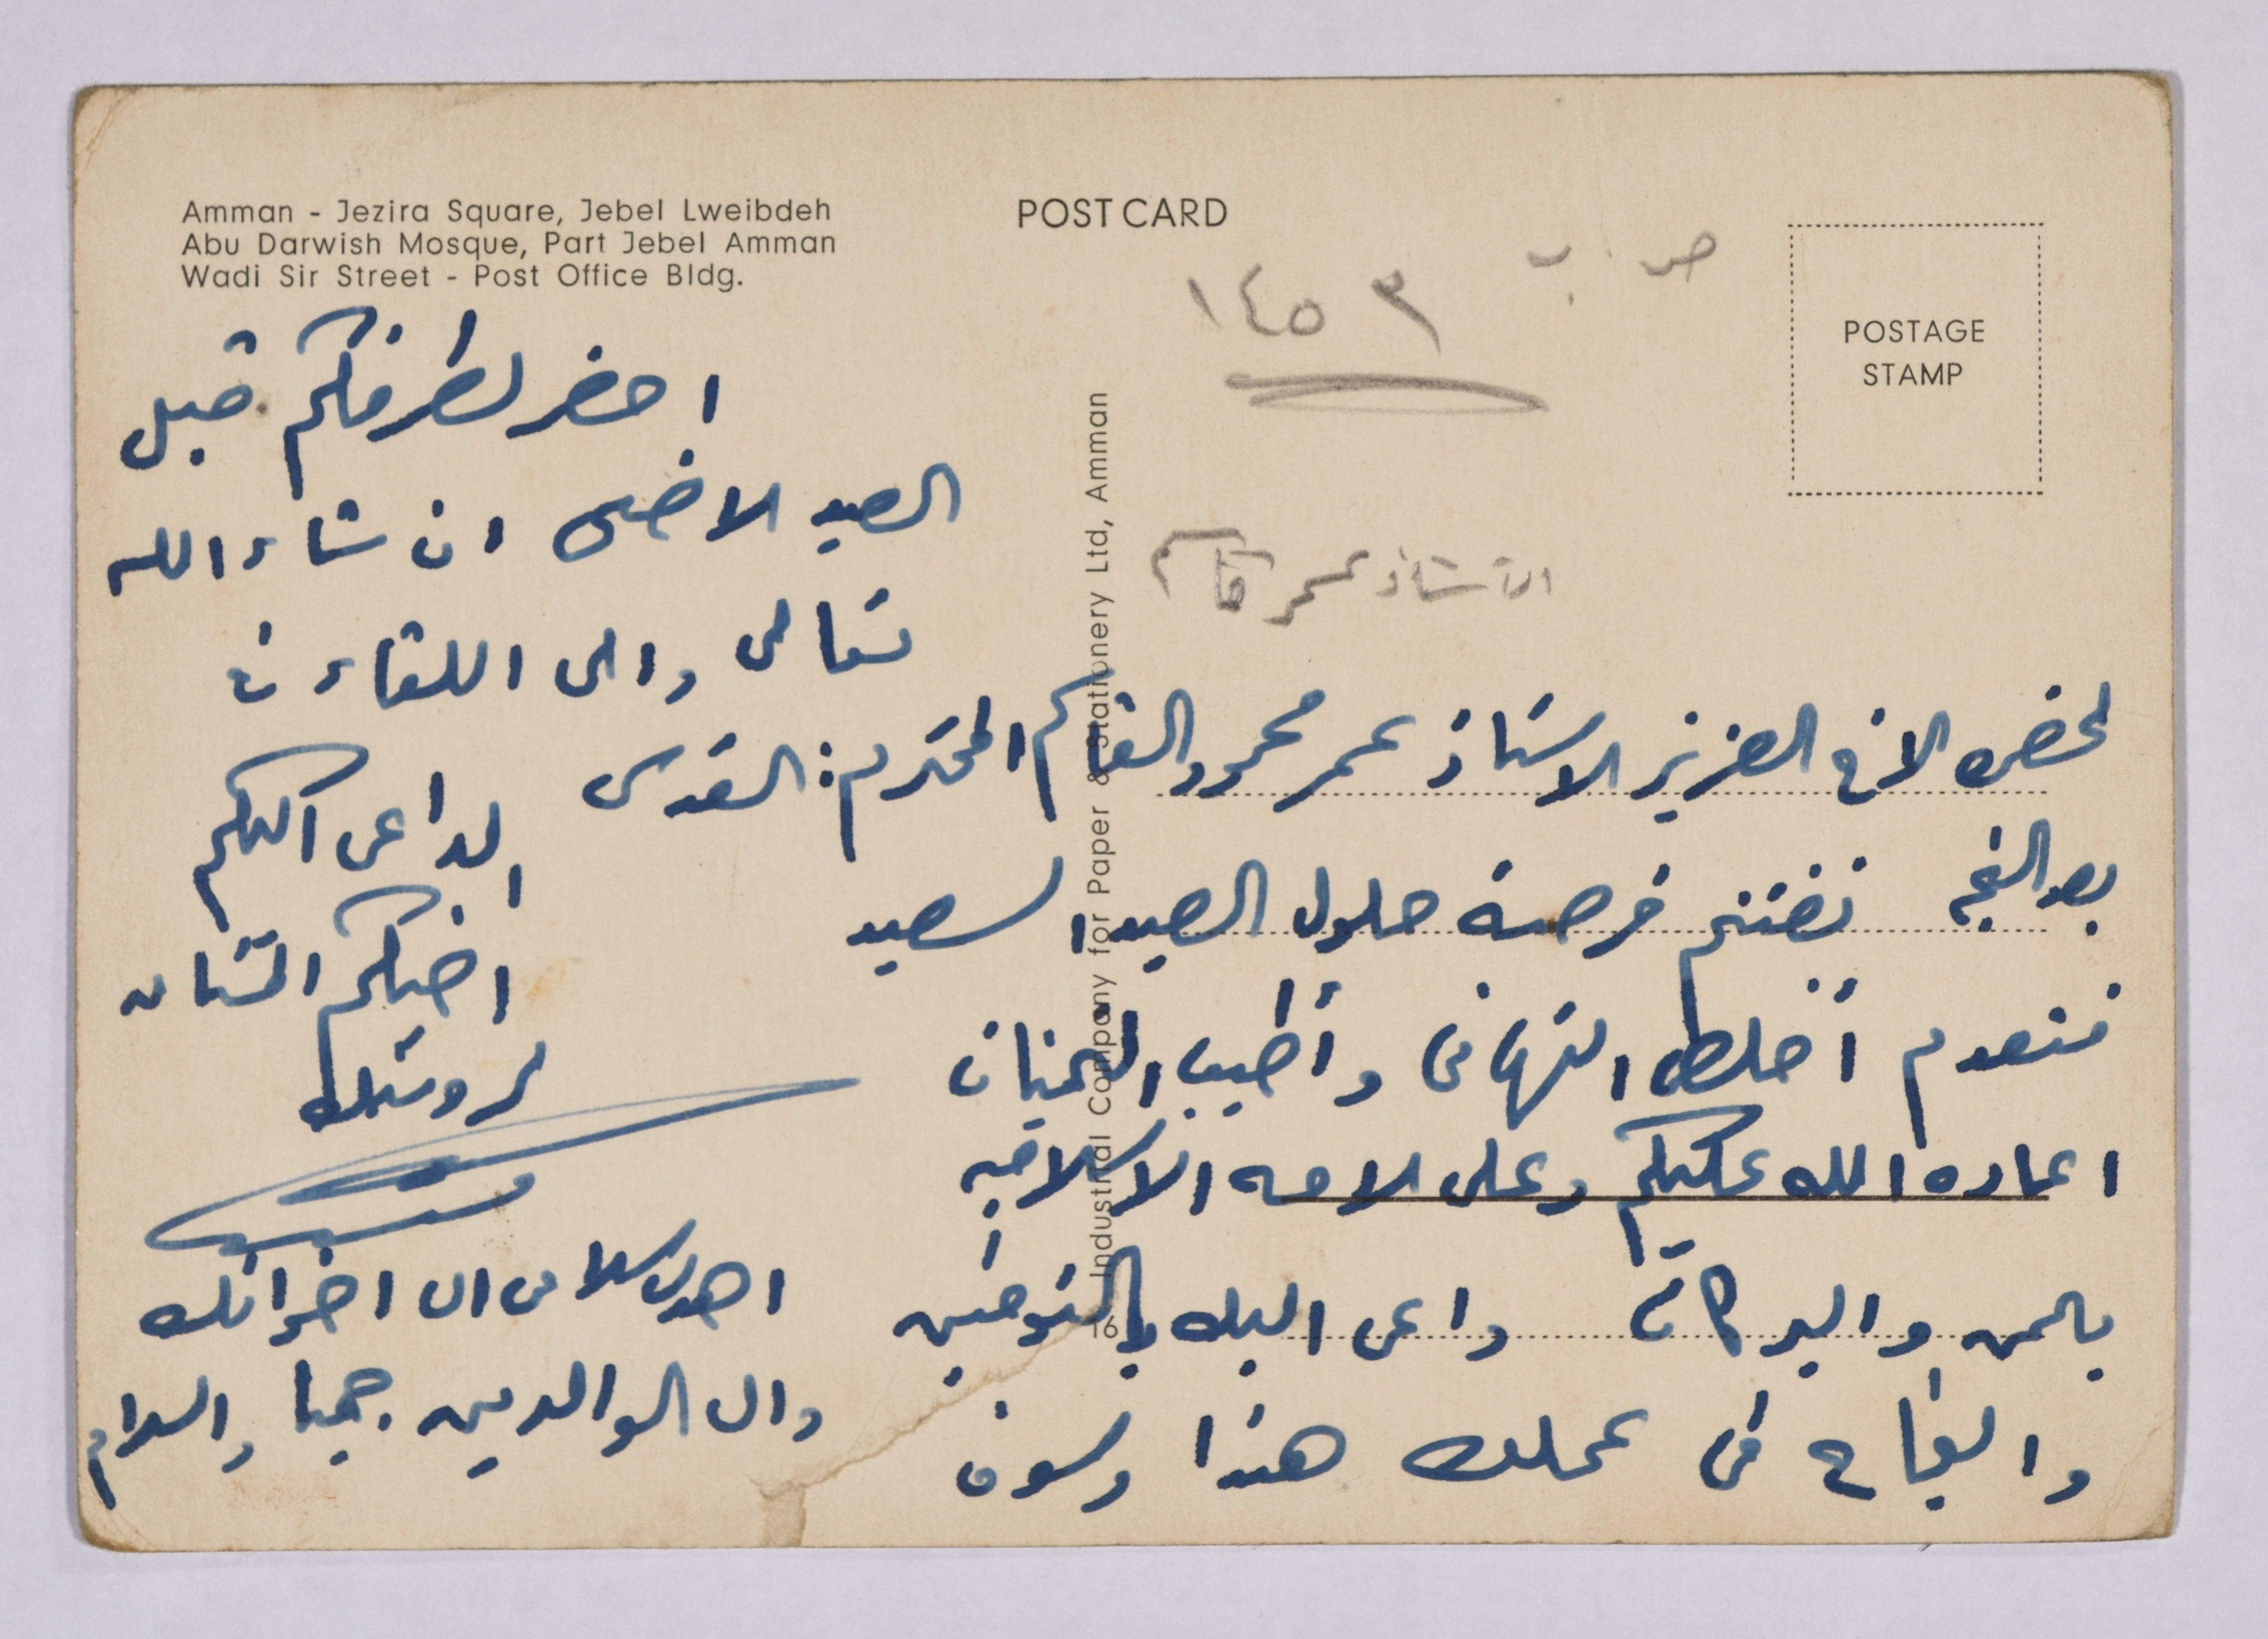 Amman - Jezira Square, Jebel Lweibdeh
Abu Darwish Mosque, Part Jebel Amman
Wadi Sir Street - Post Office Bldg.
POST CARD
POSTAGE
STAMP
ص . ب
١٤٥٣
الاستاذ عمر قاسم
لحضره الاخ العزيز الاستاذ عمر محمود القاسم المحترم : القدس
بعد التحيه نغتنم فرصة حلول العيد السعيد
فنتقدم أخلص التهانى وأطيب التمنيات
اعاده الله عليكم وعلى الامه الاسلاميه
باليمن والبركات داعى اليك بالتوفيق
والنجاح فى عملك هذا وسوف
احضر لطرفكم قبل
العيد الاضحى ان شاء الله
تعالى والى اللقاء
الداعى اليكم
اخيكم المشتاق
لرويتك
اهدى سلامى الى اخوانك
والى الوالدين جميعا والسلام
Industrial Company for Paper & Stationery Ltd, Amman
16